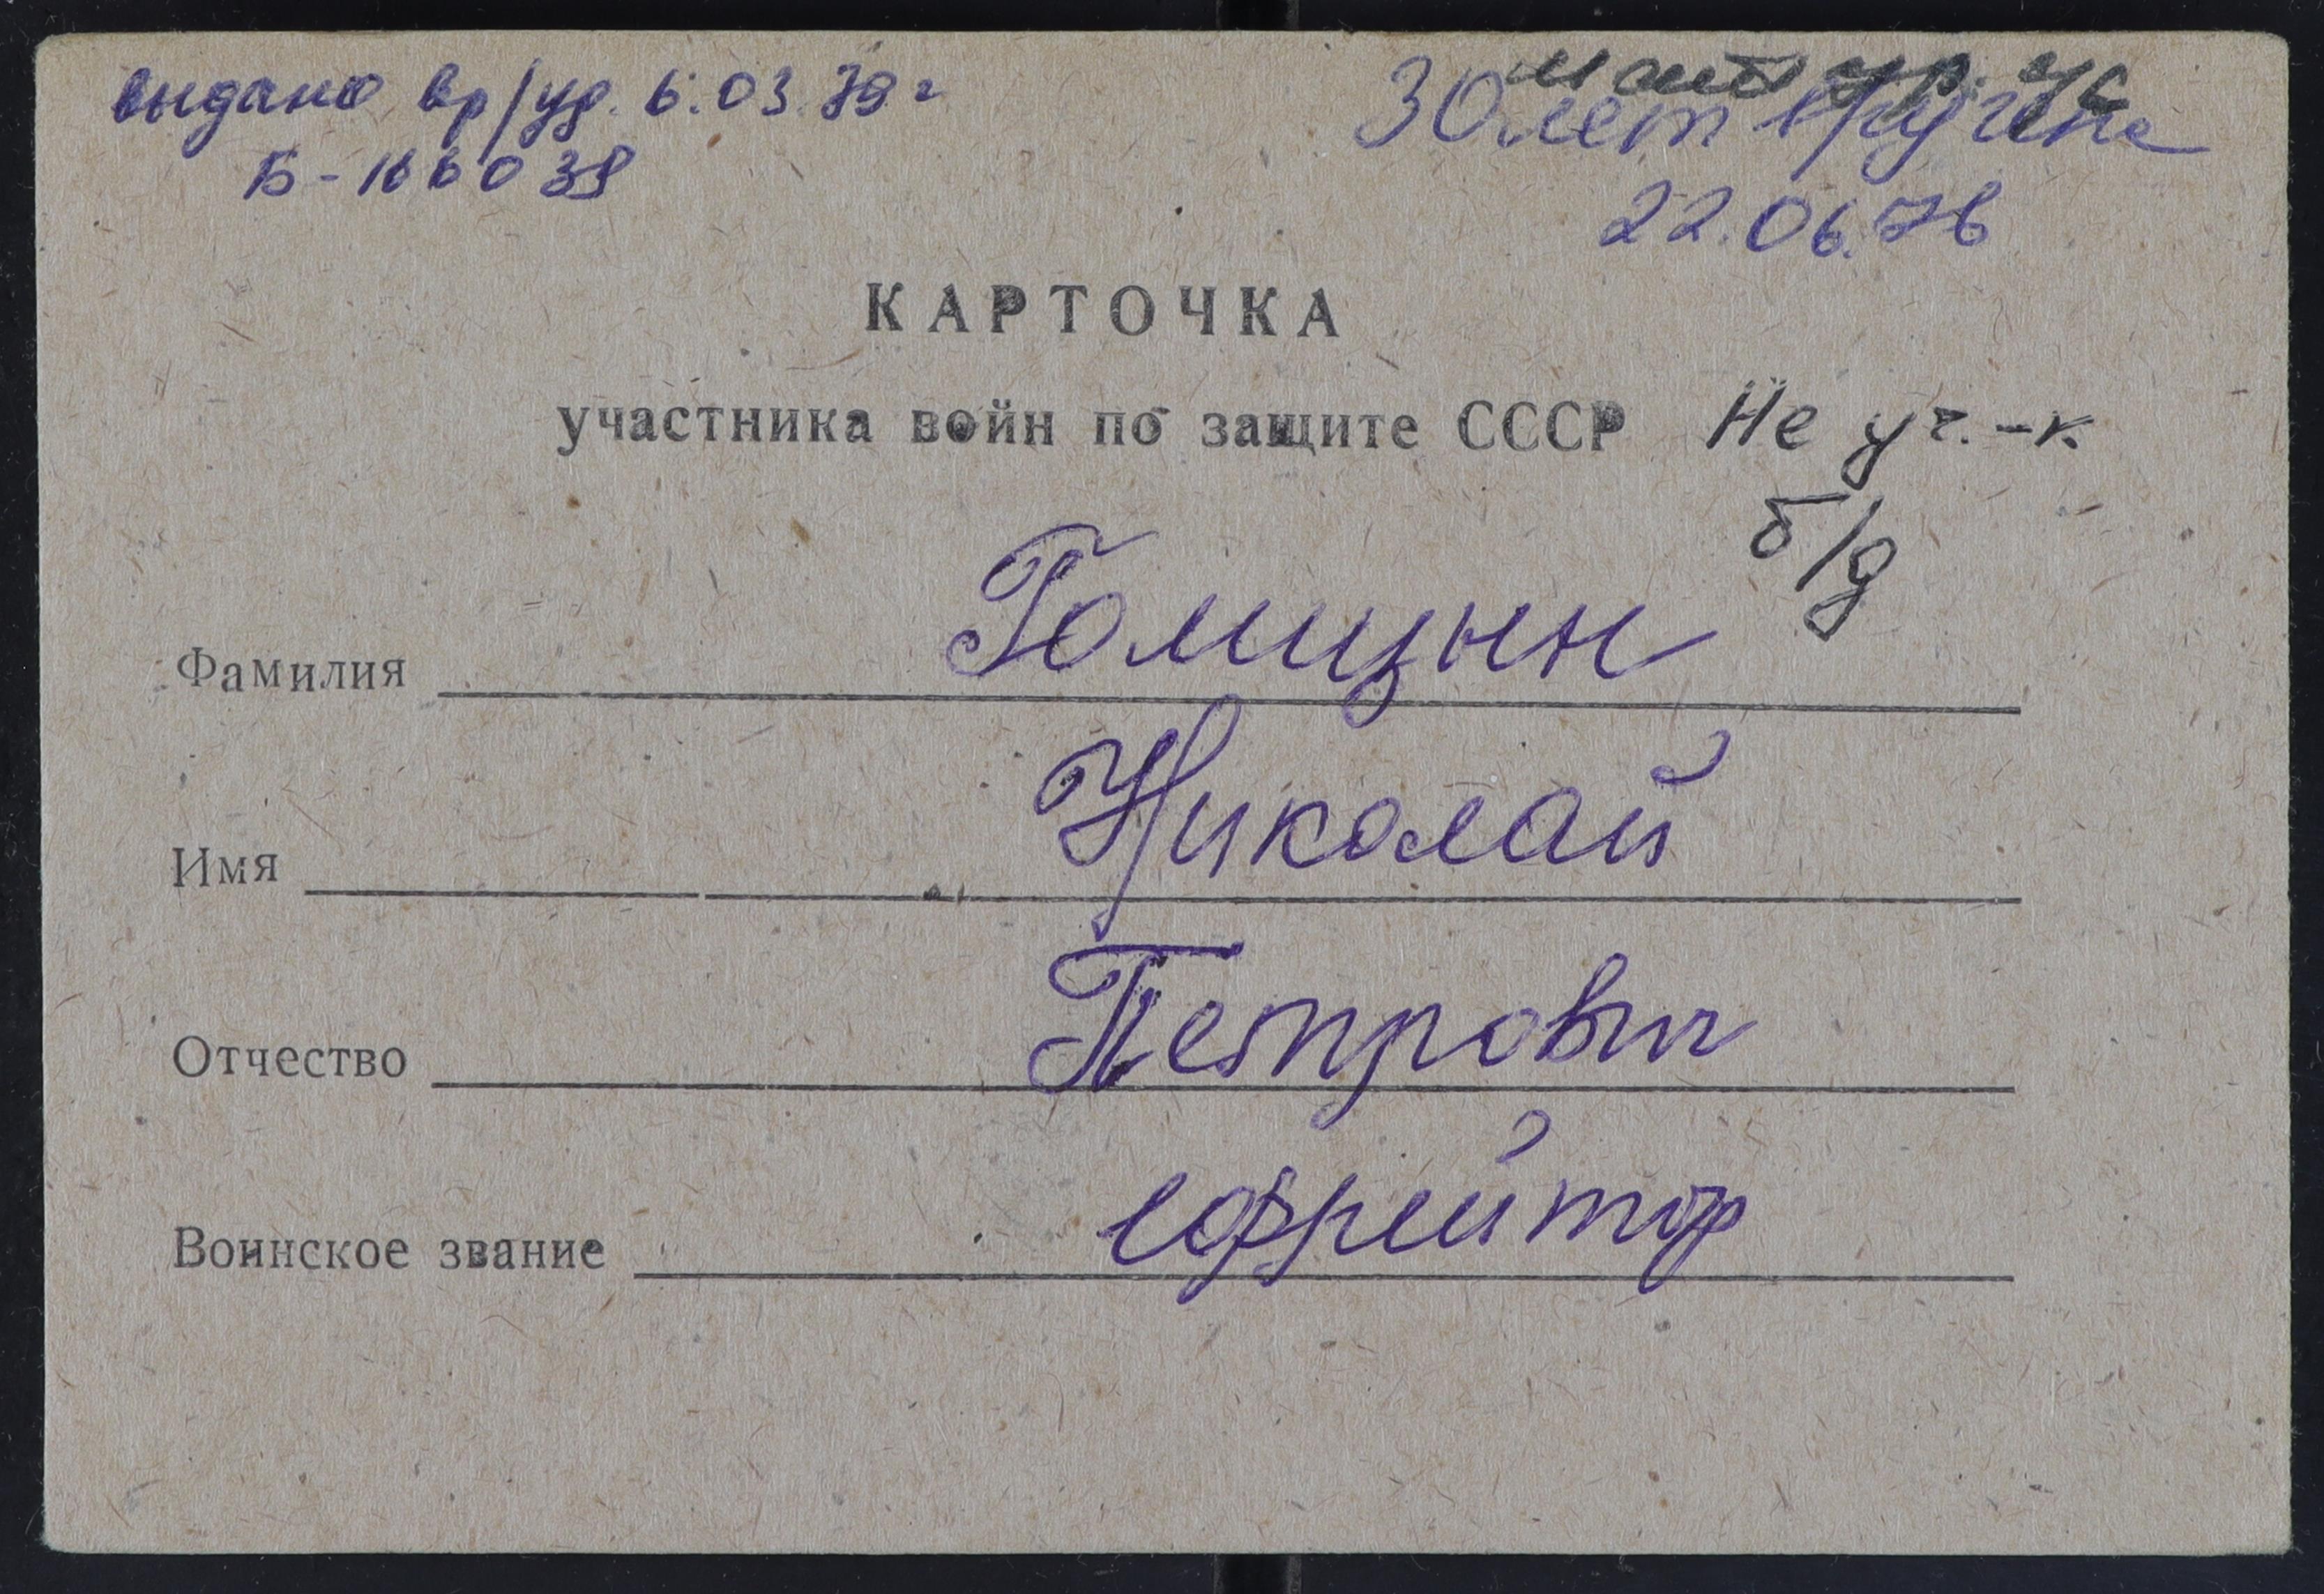 выдано вр/уд. 6.03.79 г
Б-166038
30 лет вручена
22.06.76
КАРТОЧКА
участника войн по защите СССР Не уч.-к
б/д
Фамилия Голицын
Имя Николай
Отчество Петрович
Воинское звание ефрейтор